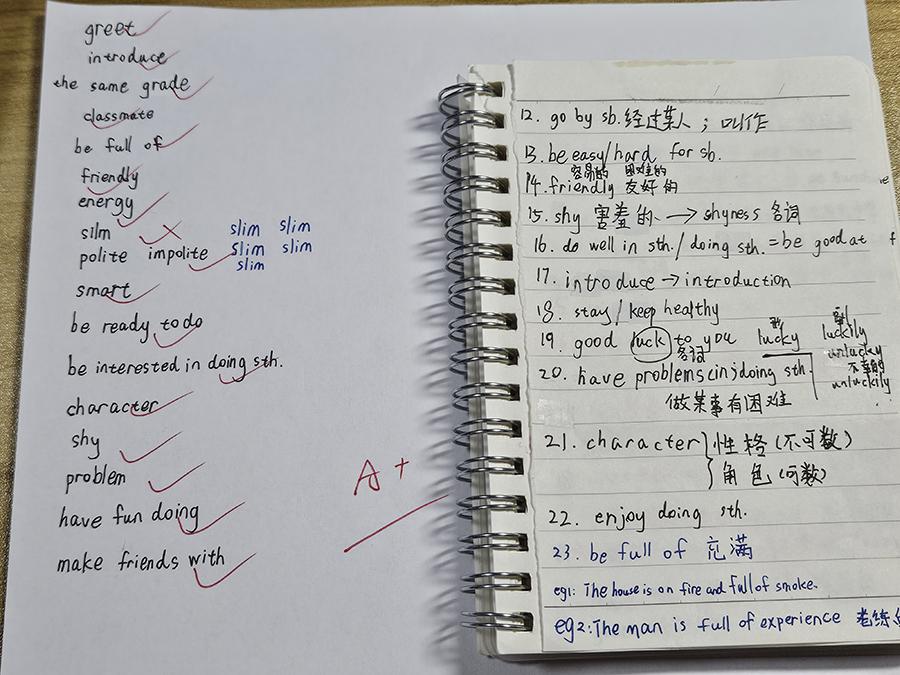 greet
introduce
the same grade
classmate
be full of
friendly
energy
silm
slim slim
slim slim
slim
polite impolite
smart
be ready to do
be interested in doing sth.
character
shy
problem
have fun doing
make friends with
A+
12. go by sb. 经过某人；叫作
13. be easy/hard for sb.
容易的 困难的
14. friendly 友好的
15. shy 害羞的 → shyness 名词
16. do well in sth. / doing sth. = be good at
17. introduce → introduction
18. stay / keep healthy
19. good luck to you lucky luckily
名词
unlucky
不幸的
unluckily
20. have problems (in) doing sth.
做某事有困难
21. character 性格 (不可数)
角色 (可数)
22. enjoy doing sth.
23. be full of 充满
eg1: The house is on fire and full of smoke.
eg2: The man is full of experience 老练